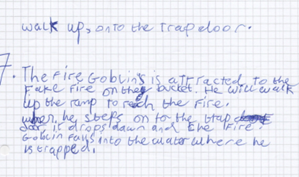 walk up, onto the trap door.
7. The Fire Goblin's is attracted to the
Fake Fire on the bucket. He will walk
up the ramp to reach the fire.
when, he steps on to the trap
door it drops down and the Fire
Goblin falls into the water where he
is trapped.